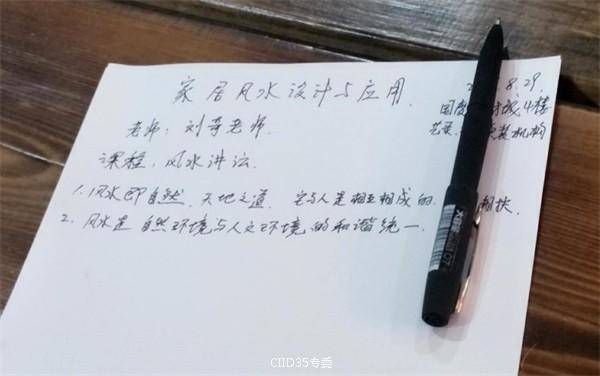 家居风水设计与应用.
8.29.
老师: 刘奇老师. 城4楼
课程: 风水讲法. 装机构
1. 风水即自然. 天地之道. 它与人是相互相成的 相扶.
2. 风水是自然环境与人文环境的和谐统一.
CIID35专委